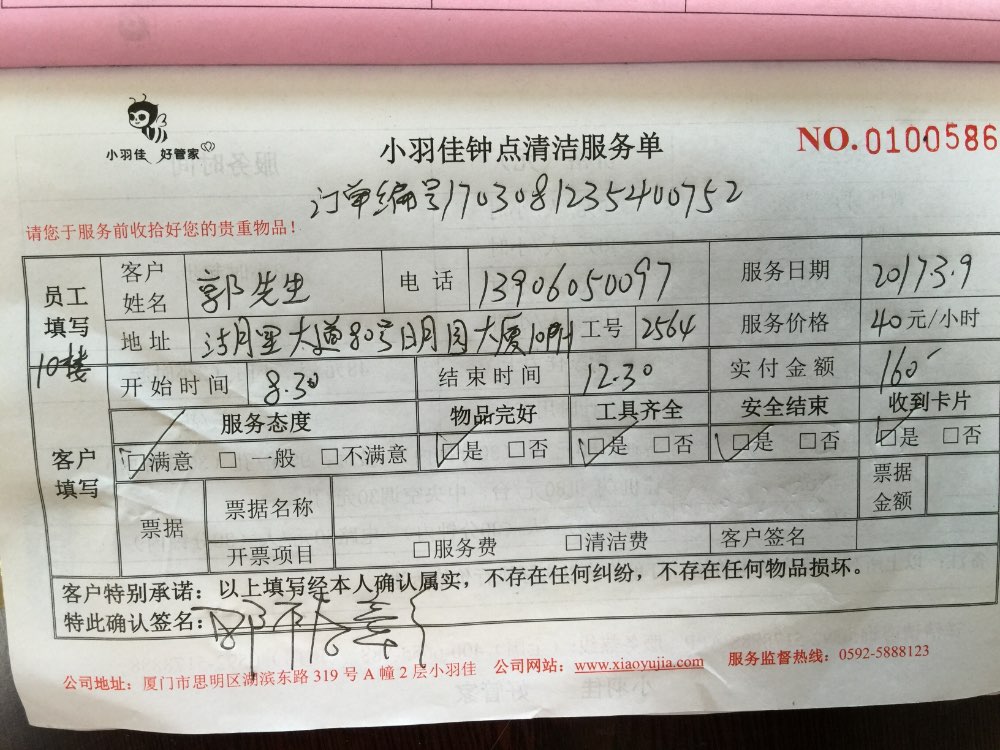 小羽佳 好管家
小羽佳钟点清洁服务单
NO.0100586
订单编号1703081235400752
请您于服务前收拾好您的贵重物品！
员工填写 客户姓名 郭先生 电话 13906050097 服务日期 2017.3.9
10楼 地址 大道80号日月园大厦 工号 2564 服务价格 40元/小时
开始时间 8.30 结束时间 12.30 实付金额 160
客户填写 服务态度 物品完好 工具齐全 安全结束 收到卡片
☑满意 □一般 □不满意 ☑是 □否 ☑是 □否 ☑是 □否 ☑是 □否
票据 票据名称 票据金额
开票项目 □服务费 □清洁费 客户签名
客户特别承诺：以上填写经本人确认属实，不存在任何纠纷，不存在任何物品损坏。
特此确认签名：
公司地址：厦门市思明区湖滨东路319号A幢2层小羽佳 公司网站：www.xiaoyujia.com 服务监督热线：0592-5888123